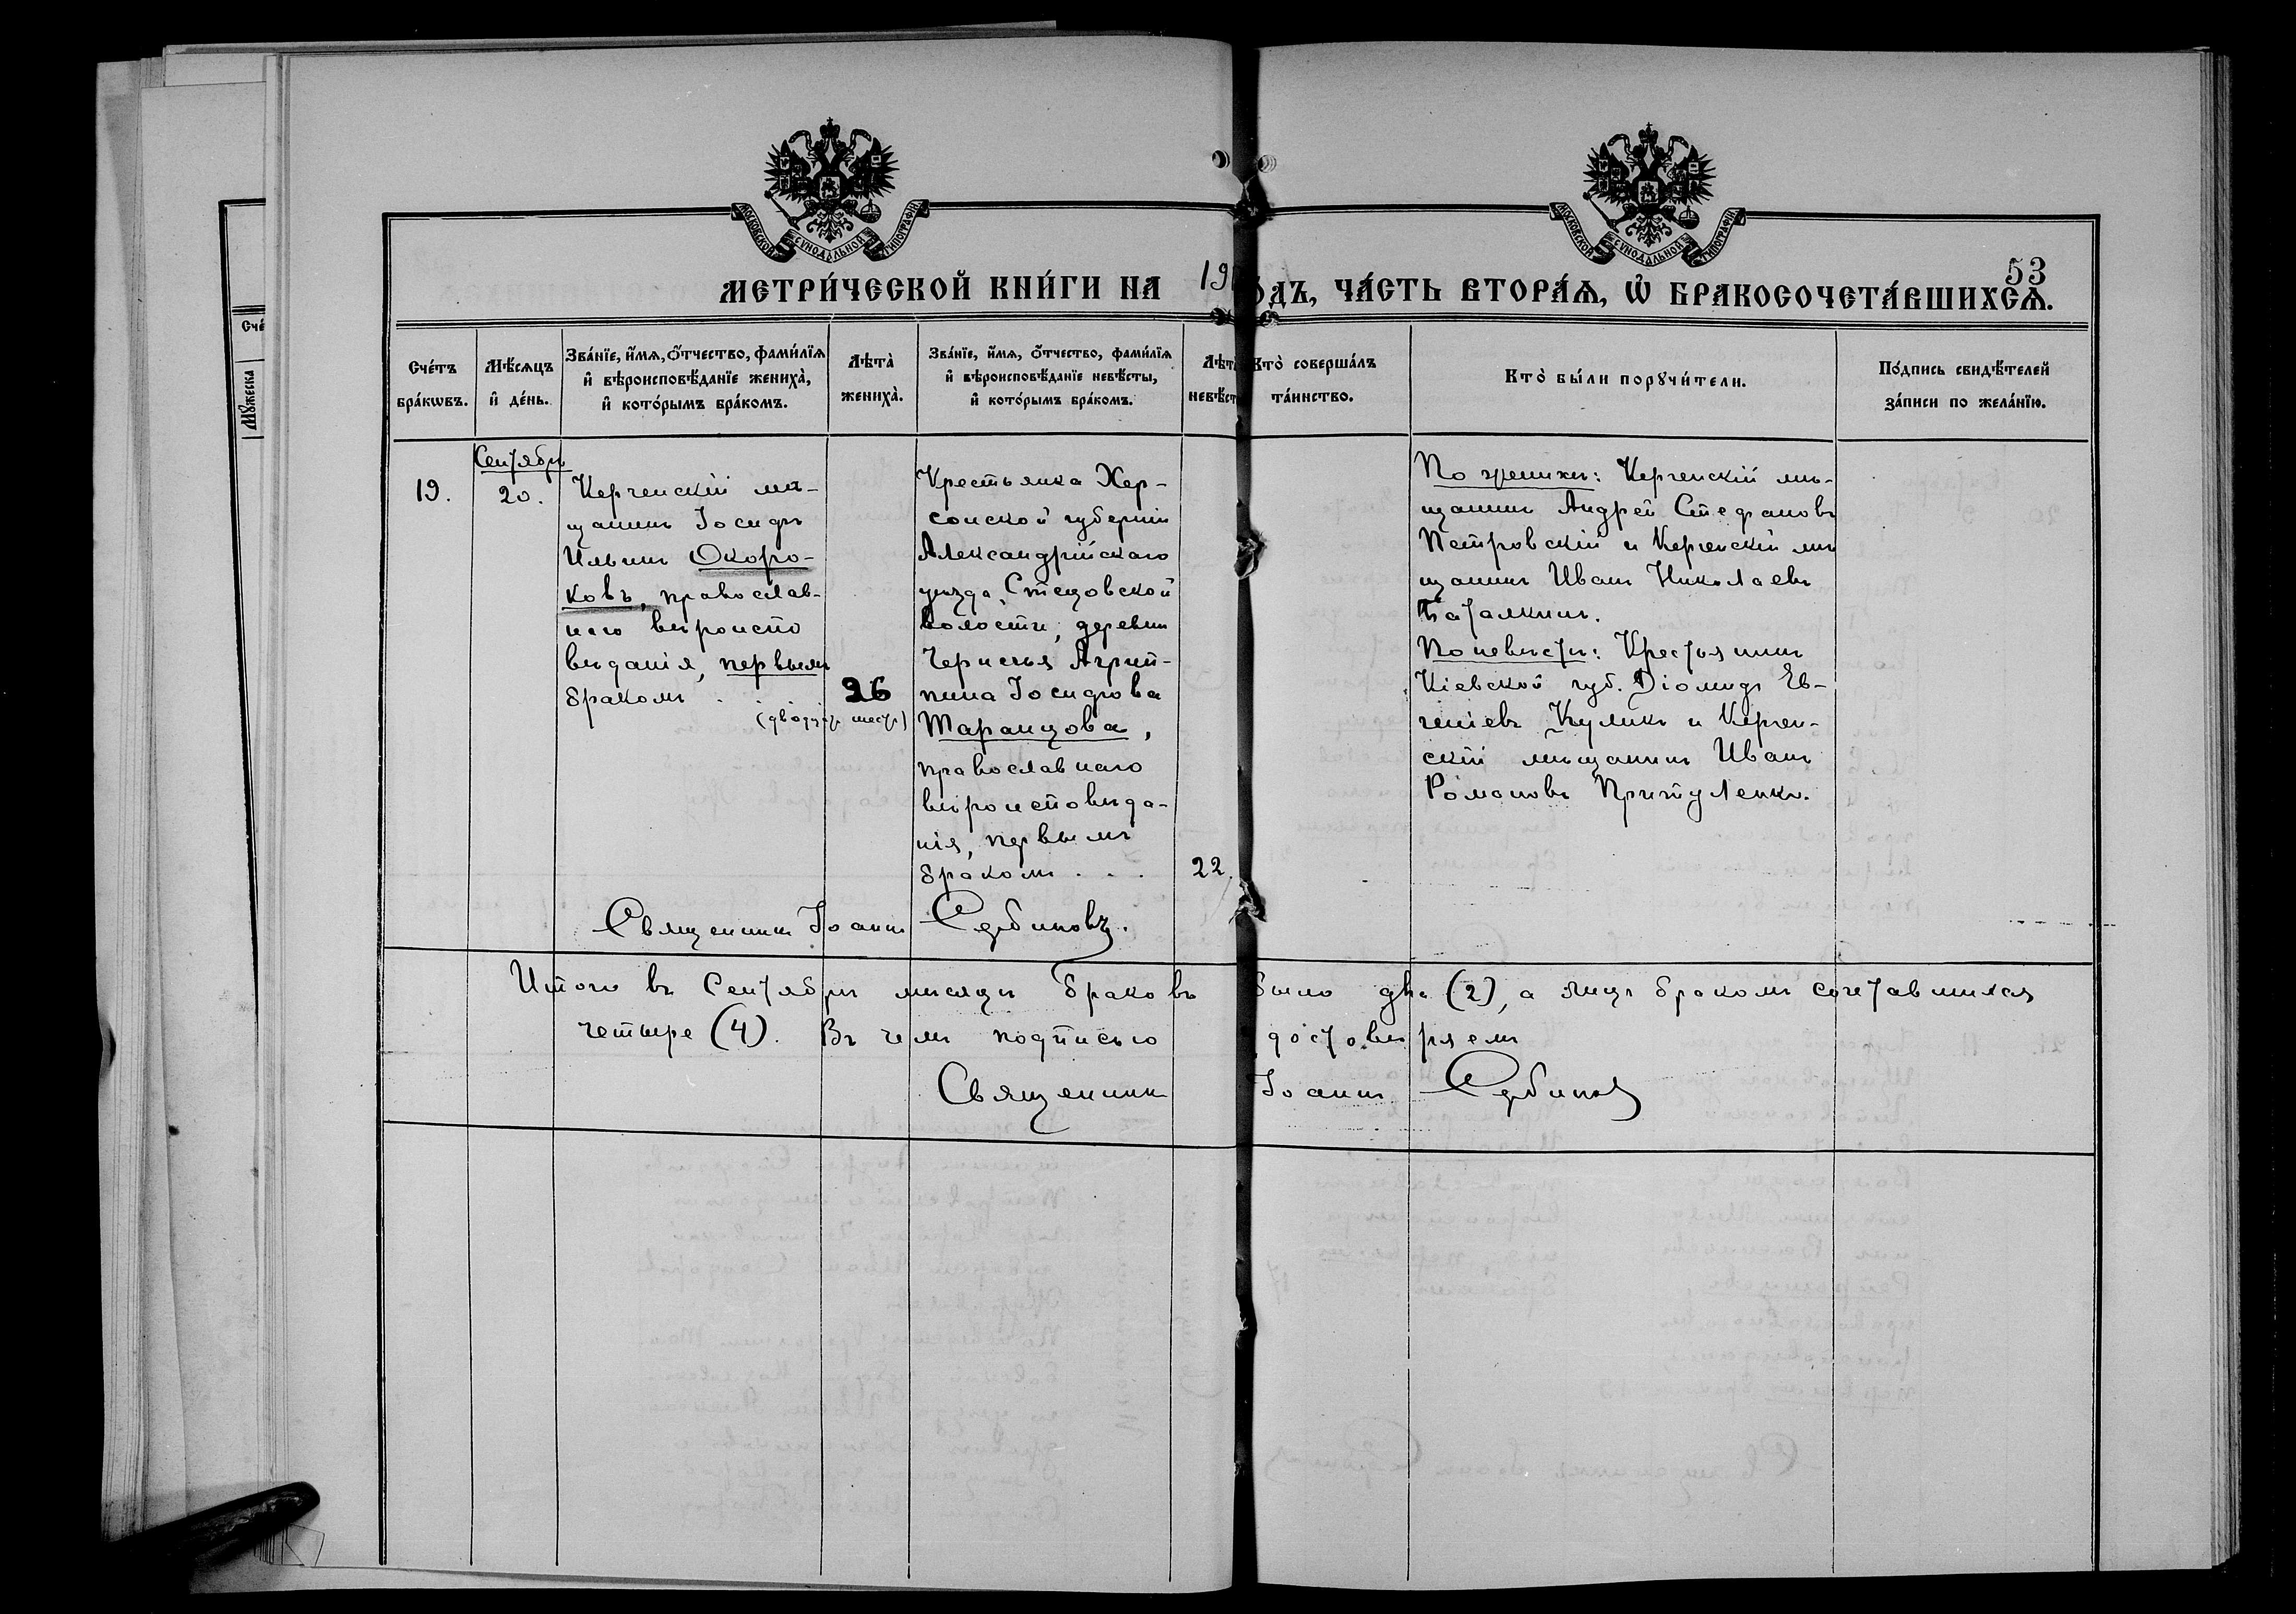 МОСКОВСКОЙ СѴНОДАЛЬНОЙ ТИПОГРАФІИ
МОСКОВСКОЙ СѴНОДАЛЬНОЙ ТИПОГРАФІИ
53
МЕТРИ́ЧЕСКОЙ КНИ́ГИ НА 19 ОДЪ, ЧА́СТЬ ВТОРА́Ѧ, Ѽ БРАКОСОЧЕТА́ВШИХСѦ.
Сче́
Мꙋжеска
Сче́тъ
бра́кѡвъ.
Мѣ́сѧцъ
и҆ де́нь.
Зва́нїе, и҆́мѧ, ѻ҆́тчество, фами́лїѧ
и҆ вѣроисповѣ́данїе жениха̀,
и҆ кото́рымъ бра́комъ.
Лѣта̀
жениха̀.
Зва́нїе, и҆́мѧ, ѻ҆́тчество, фами́лїѧ
и҆ вѣроисповѣ́данїе невѣ́сты,
и҆ кото́рымъ бра́комъ.
Лѣт
невѣ́ст
Кто̀ соверша́лъ
та́инство.
Кто̀ бы́ли порꙋчи́тели.
По́дпись свидѣ́телей
за́писи по жела́нїю.
19.
Сентябрь
20.
Керченскій мѣ-
щанинъ Іосифъ
Ильинъ Окоро-
ковъ, православ-
наго вѣроиспо
вѣданія, первымъ
бракомъ .
26
(двадцать шесть)
Крестьянка Хер-
сонской губерніи
Александрійскаго
уѣзда, Стецовской
волости, деревни
Чернечья Агрип-
пина Іосифова
Таранцова,
православнаго
вѣроисповѣда-
нія, первымъ
бракомъ . . .
22.
По женихѣ: Керченскій мѣ-
щанинъ Андрей Стефановъ
Петровскій и Керченскій мѣ
щанинъ Иванъ Николаевъ
По невѣстѣ: Крестьянинъ
Кіевской губ. Діомидъ Ев-
геніевъ Куликъ и Керчен-
скій мѣщанинъ Иванъ
Романовъ Притуленко.
Священникъ Іоаннъ Сербиновъ.
Итого въ Сентябрѣ мѣсяцѣ браковъ было два (2), а лицъ бракомъ сочетавшихся
четыре (4). Въ чемъ подписью удостовѣряемъ
Священникъ Іоаннъ Сербиновъ